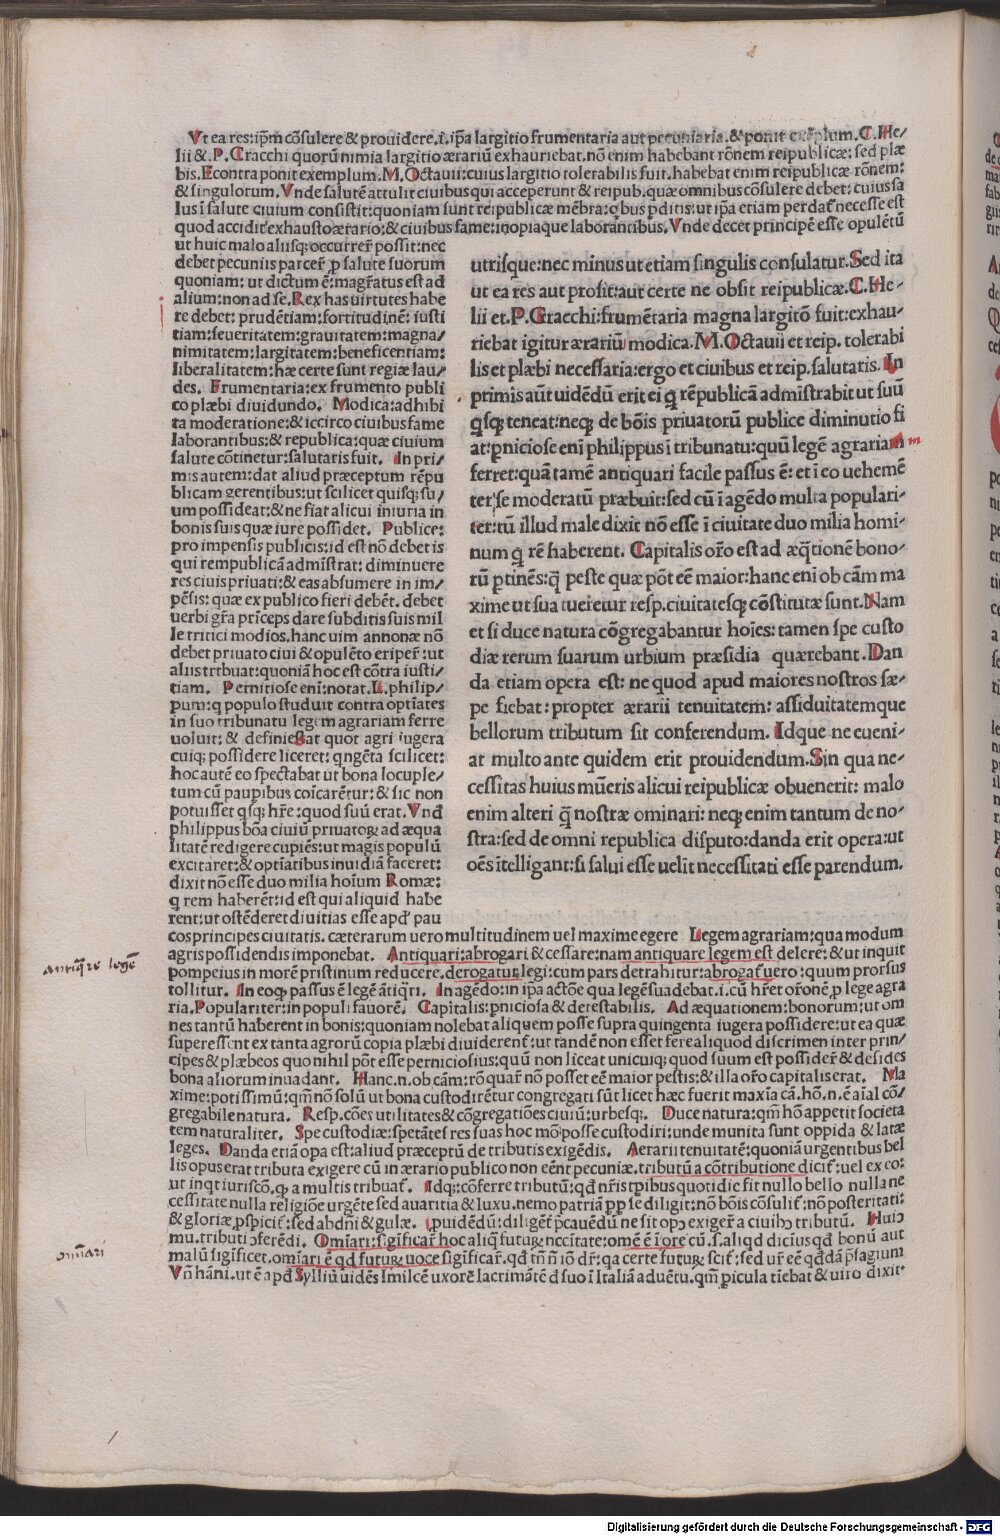 Vt ea res:ip̄m cōsulere & prouidere.i.ip̄a largitio frumentaria aut pecuniaria.& ponit exēplum.C.He/
lii &.P.Gracchi quorū nimia largitio ærariū exhauriebat.nō enim habebant rōnem reipublicæ: sed plæ
bis.Econtra ponit exemplum.M.Octauii:cuius largitio tolerabilis fuit.habebat enim reipublicæ rōnem:
& singulorum.Vnde salutē attulit ciuibus qui acceperunt & reipub.quæ omnibus cōsulere debet: cuius sa
lus ī salute ciuium consistit:quoniam sunt reipublicæ mēbra:q̄bus pditis:ut ip̄a etiam perdat̄ necesse est
quod accidit exhausto ærario:& ciuibus fame:inopiaque laborantibus.Vnde decet principē esse opulētū
ut huic malo aliisq;occurrer̄ possit:nec
debet pecuniis parcer̄ p salute suorum
quoniam: ut dictum ē:magr̄atus est ad
alium:non ad se.Rex has uirtutes habe
re debet: prudētiam:fortitudinē: iusti
tiam:seueritatem:grauitatem:magna/
nimitatem:largitatem:beneficentiam:
liberalitatem: hæ certe sunt regiæ lau/
des. Frumentaria:ex frumento publi
co plæbi diuidundo. Modica:adhibi
ta moderatione:& iccirco ciuibus fame
laborantibus:& republica:quæ ciuium
salute cōtinetur:salutaris fuit. In pri/
mis autem:dat aliud præceptum rēpu
blicam gerentibus:ut scilicet quisq;su/
um possideat:& ne fiat alicui iniuria in
bonis suis quæ iure possidet. Publice:
pro impensis publicis:id est nō debet is
qui rempublicā admīstrat: diminuere
res ciuis priuati:& eas absumere in im/
pēsis: quæ ex publico fieri debēt. debet
uerbi gr̄a pr̄iceps dare subditis suis mil
le tritici modios.hanc uim annonæ nō
debet priuato ciui & opulēto eriper̄ :ut
aliis trtbuat:quoniā hoc est cōtra iusti/
tiam. Pernitiose eni:notat.L.philip/
pum:q populo studuit contra optiates
in suo tribunatu legem agrariam ferre
uoluit: & definiebat quot agri iugera
cuiq; possidere liceret: qngēta scilicet:
hoc autē eo spectabat ut bona locuple/
tum cū paupibus coīcarētur:& sic non
potuisset qsq; hr̄e:quod suū erat.Vnd
philippus bōa ciuiū priuatoꝝ ad æqua
litatē redigere cupiēs:ut magis populū
excitaret:& optīatibus inuidiā faceret:
dixit nō esse duo milia hoīum Romæ:
q rem haberēt:id est qui aliquid habe
rent:ut ostēderet diuitias esse apd' pau
utrisque:nec minus ut etiam singulis consulatur.Sed ita
ut ea res aut profit:aut certe ne obsit reipublicæ.C.He/
lii et.P.Gracchi:frumētaria magna largitō fuit:exhau/
riebat igitur ærariū modica.M.Octauii et reip. tolerabi
lis et plæbi necessaria:ergo et ciuibus et reip.salutaris. In
primis aūt uidēdū erit ei q rēpublicā admīstrabit ut suū
qsq; teneat:neq; de bōis priuatorū publice diminutio fi
at:pniciose enī philippus ī tribunatu:quū legē agrariam
ferret:quā tamē antiquari facile passus ē: et ī eo uehemē
ter se moderatū præbuit:sed cū ī agēdo multa populari/
ter:tū illud male dixit nō esse ī ciuitate duo milia homi/
num q rē haberent. Capitalis or̄o est ad æq̄tionē bono/
rū ptinēs:q̄ peste quæ pōt eē maior:hanc enī ob cām ma
xime ut sua tueretur resp.ciuitatesq; cōstitutæ sunt.Nam
et si duce natura cōgregabantur hoīes: tamen spe custo
diæ rerum suarum urbium præsidia quærebant.Dan
da etiam opera est: ne quod apud maiores nostros sæ/
pe fiebat: propter ærarii tenuitatem: assiduitatemque
bellorum tributum sit conferendum. Idque ne eueni/
at multo ante quidem erit prouidendum.Sin qua ne/
cessitas huius mūeris alicui reipublicæ obuenerit: malo
enim alteri q̄ nostræ ominari: neq; enim tantum de no/
stra:sed de omni republica disputo:danda erit opera:ut
oēs ītelligant:si salui esse uelit necessitati esse parendum.
cos principes ciuitatis. cæterarum uero multitudinem uel maxime egere Legem agrariam:qua modum
agris possidendis imponebat. Antiquari:abrogari & cessare:nam antiquare legem est delere:& ut inquit
pompeius in morē pristinum reducere.derogatur legi: cum pars detrahitur:abrogat̄ uero : quum prorsus
tollitur. In eoq; passus ē legē ātiq̄ri. In agēdo:in ip̄a actōe qua legē suadebat.i.cū hr̄et or̄onē p lege agra
ria.Populariter:in populi fauorē. Capitalis:pniciosa & detestabilis. Ad æquationem:bonorum:ut om
nes tantū haberent in bonis:quoniam nolebat aliquem posse supra quingenta iugera possidere:ut ea quæ
superessent ex tanta agrorū copia plæbi diuiderent̄: ut tandē non esset fere aliquod discrimen inter prin/
cipes & plæbeos quo nihil pōt esse perniciosius:quū non liceat unicuiq;quod suum est possider̄ & desides
bona aliorum inuadant. Hanc.n.ob cām:rō quar̄ nō posset eē maior pestis:& illa or̄o capitalis erat. Ma
xime:potissimū:qm̄ nō solū ut bona custodirētur congregati sūt licet hæc fuerit maxīa cā.hō.n.ē aīal cō/
gregabile natura. Resp.cōes utilitates & cōgregatiōes ciuiū:urbesq;. Duce natura:qm̄ hō appetit societa
tem naturaliter. Spe custodiæ:spetātes res suas hoc mō posse custodiri:unde munita sunt oppida & latæ
leges. Danda etiā opa est:aliud præceptū de tributis exigēdis. Aerarii tenuitatē:quoniā urgentibus bel
lis opus erat tributa exigere cū in ærario publico non eēnt pecuniæ.tributū a cōtributione dicit̄:uel ex eo:
ut inqt iuriscō.qꝫ a multis tribuat̄. Idq;:cōferre tributū:qd̄ nr̄is tp̄ibus quotidie fit nullo bello nulla ne
cessitate nulla religiōe urgēte sed auaritia & luxu.nemo patriā pp se diligit:nō bōis cōsulit̄:nō posteritati:
& gloriæ pspicit̄:sed abdn̄i & gulæ. puidēdū:diligēt̄ pcauēdū ne sit opꝰ exiger̄ a ciuibꝰ tributū. Huiꝰ
mu.tributi ꝯferēdi. Omīari:significar̄ hoc aliq̄ futuꝝ nccitate:omē ē ī ore cū.s.aliqd dicius qd̄ bonū aut
malū significet.omīari ē qd̄ futuꝝ uoce significar̄.qd̄ tn̄ nō dr̄:qa certe futuꝝ scit̄:sed ur̄ eē qddā p̄sagium
Vn̄ hāni.ut ē apd̄ Sylliū uidēs Imilcē uxorē lacrimātē d suo ī Italiā aduētu.qm̄ picula tīebat & uiro dixit.
m
antiq̄re legē
omīari
Digitalisierung gefördert durch die Deutsche Forschungsgemeinschaft - DFG